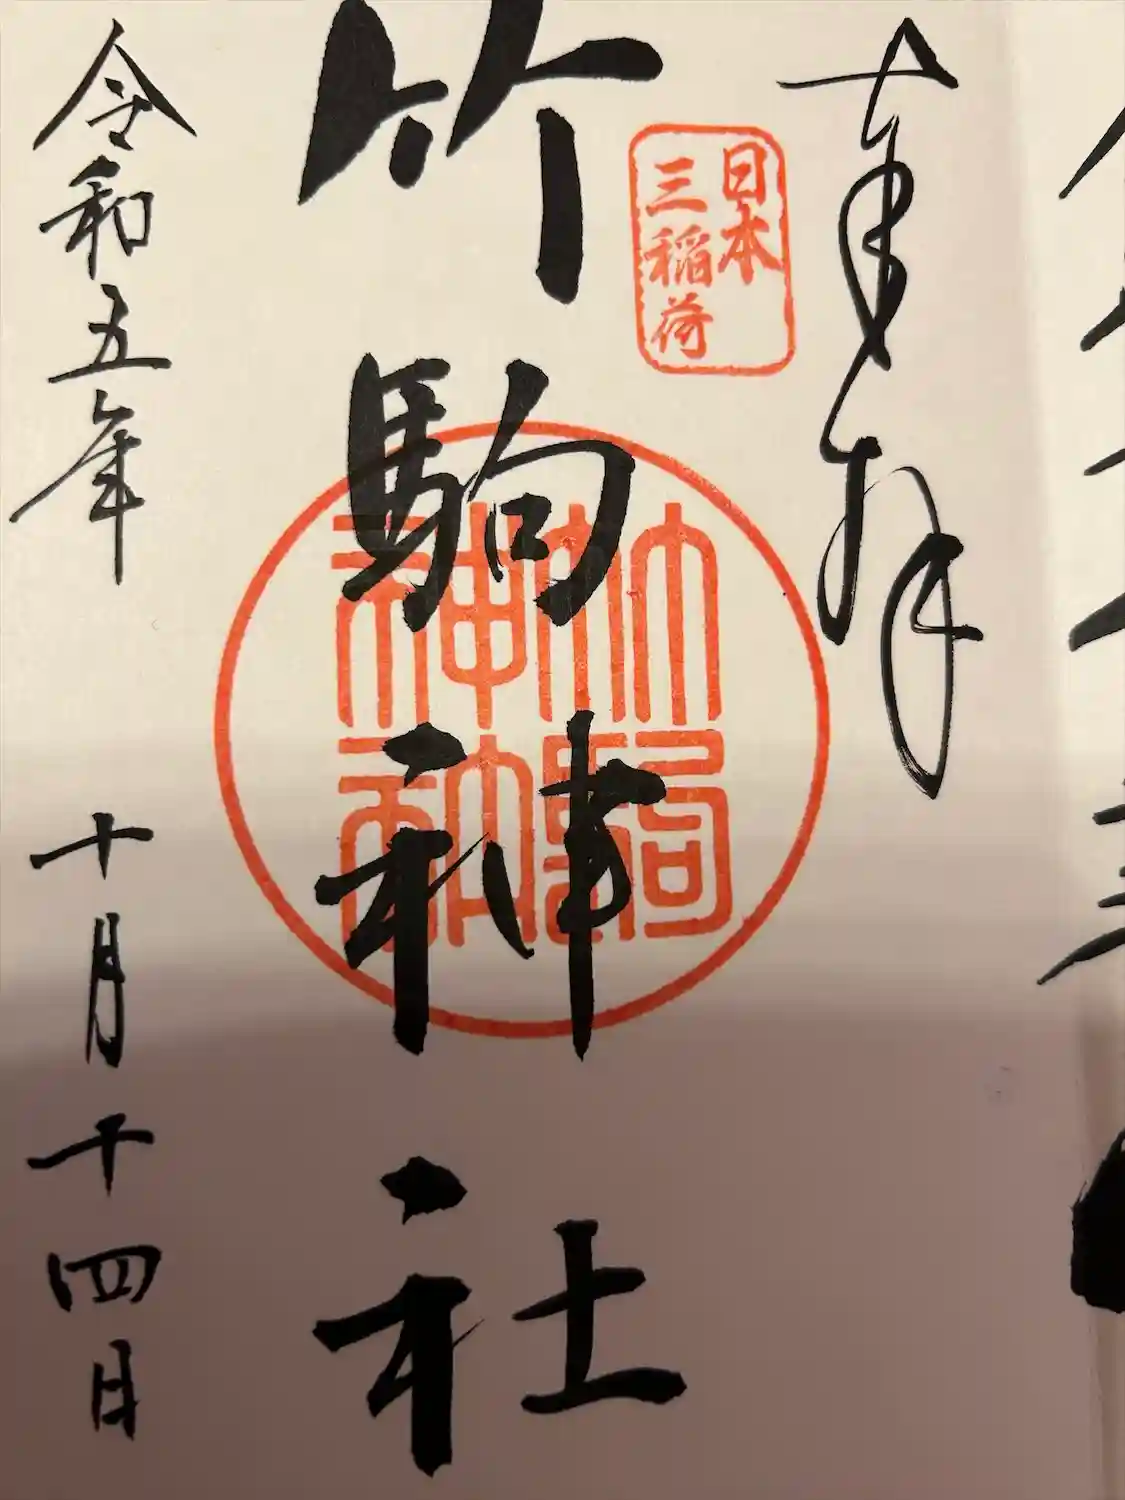 奉拝
日本
三稲荷
竹駒神社
竹駒
神社
令和五年 十月十四日